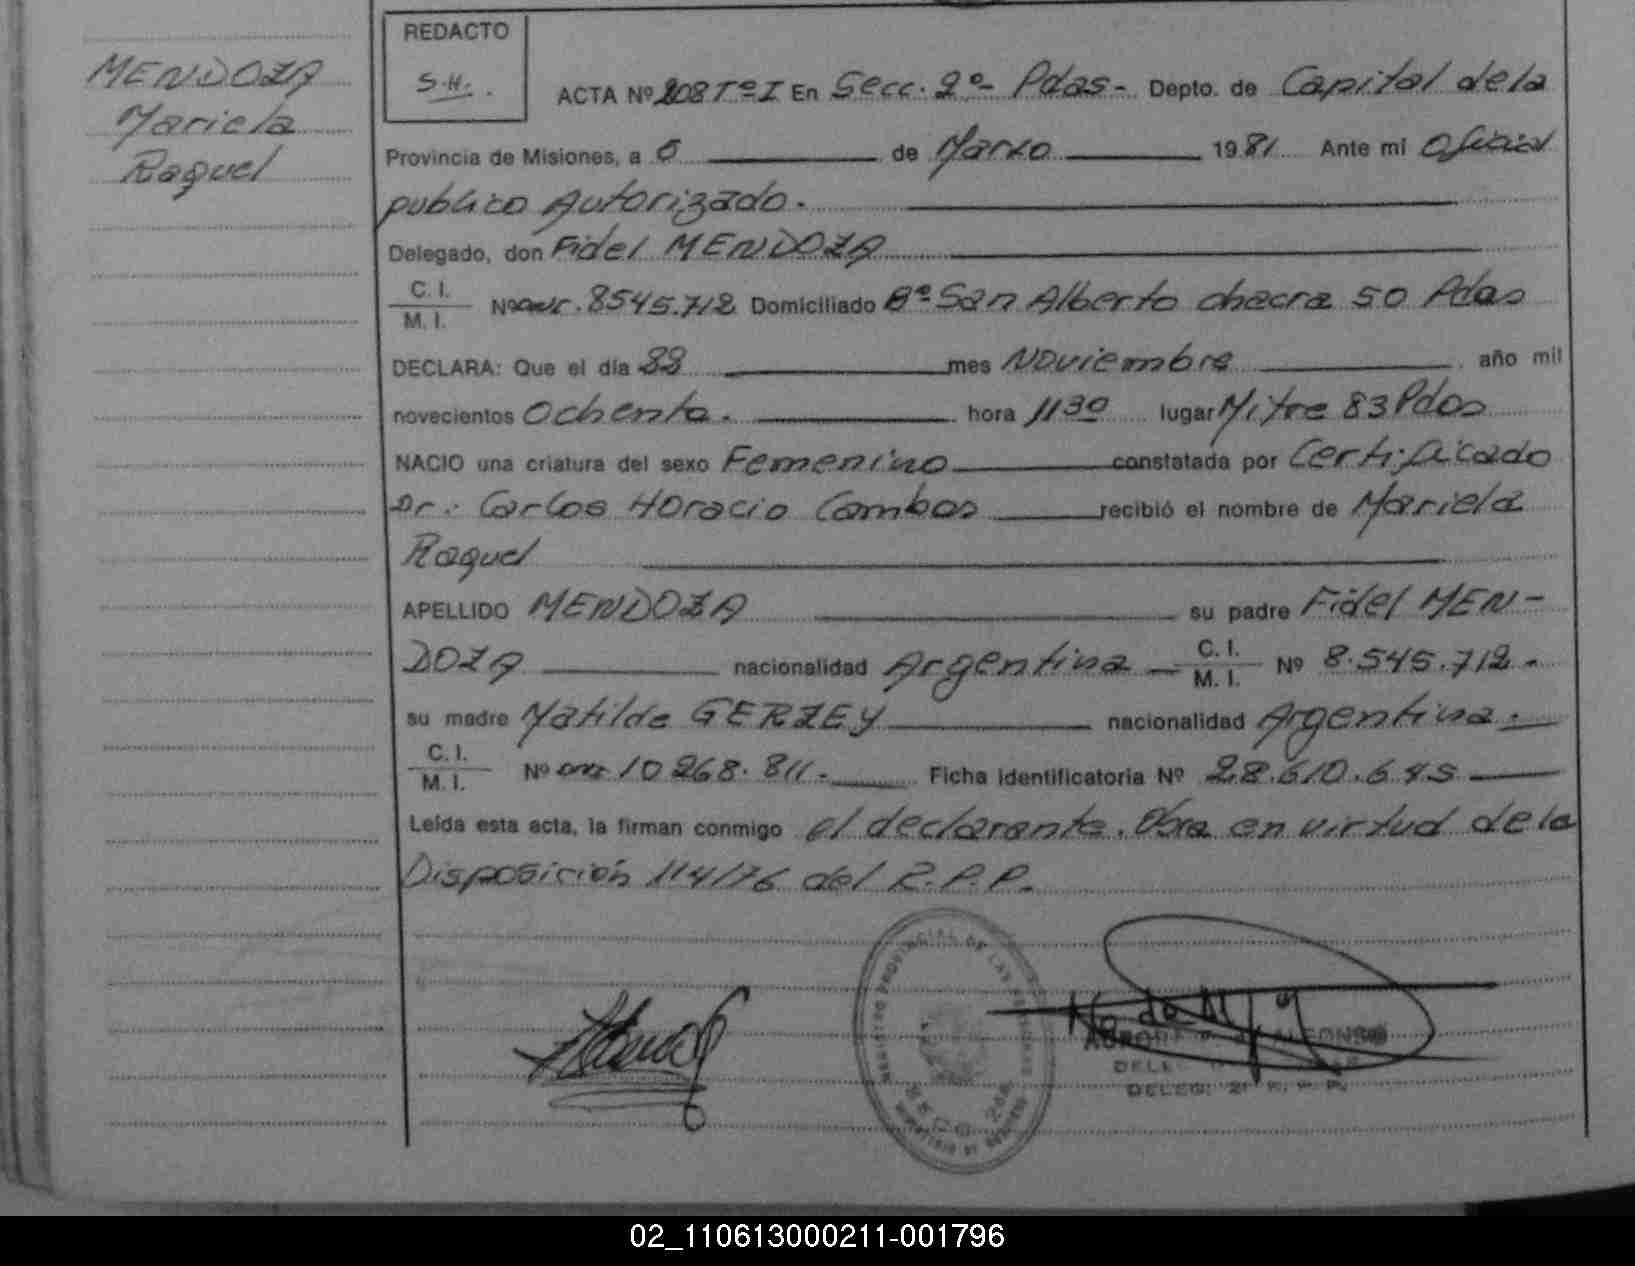 MENDOZA
Mariela
Raquel
REDACTO
S.H.
ACTA Nº 208 Tº I En Secc. 2º - Pdas - Depto. de Capital de la
Provincia de Misiones, a 6 de Marzo 1981 Ante mi Oficial
publico Autorizado.
Delegado, don Fidel MENDOZA
C. I.
M. I. Nº 8545.712 Domiciliado Bº San Alberto chacra 50 Pdas
DECLARA: Que el día mes Noviembre año mil
novecientos Ochenta. hora 11 30 lugar Mitre 83 Pdas
NACIO una criatura del sexo Femenino constatada por Certificado
Dr. Carlos Horacio Cambas recibió el nombre de Mariela
Raquel
APELLIDO MENDOZA su padre Fidel MEN-
DOZA nacionalidad Argentina C. I. M. I. Nº 8.545.712.-
su madre Matilde GERZEY nacionalidad Argentina.
C. I.
M. I. Nº 10 268.811.- Ficha identificatoria Nº 28.610.645
Leída esta acta, la firman conmigo el declarante. Obra en virtud de la
Disposición 114/76 del R.P.P.
REGISTRO PROVINCIAL DE LAS PERSONAS
DELEG. 2ª R. P. P.
02_110613000211-001796